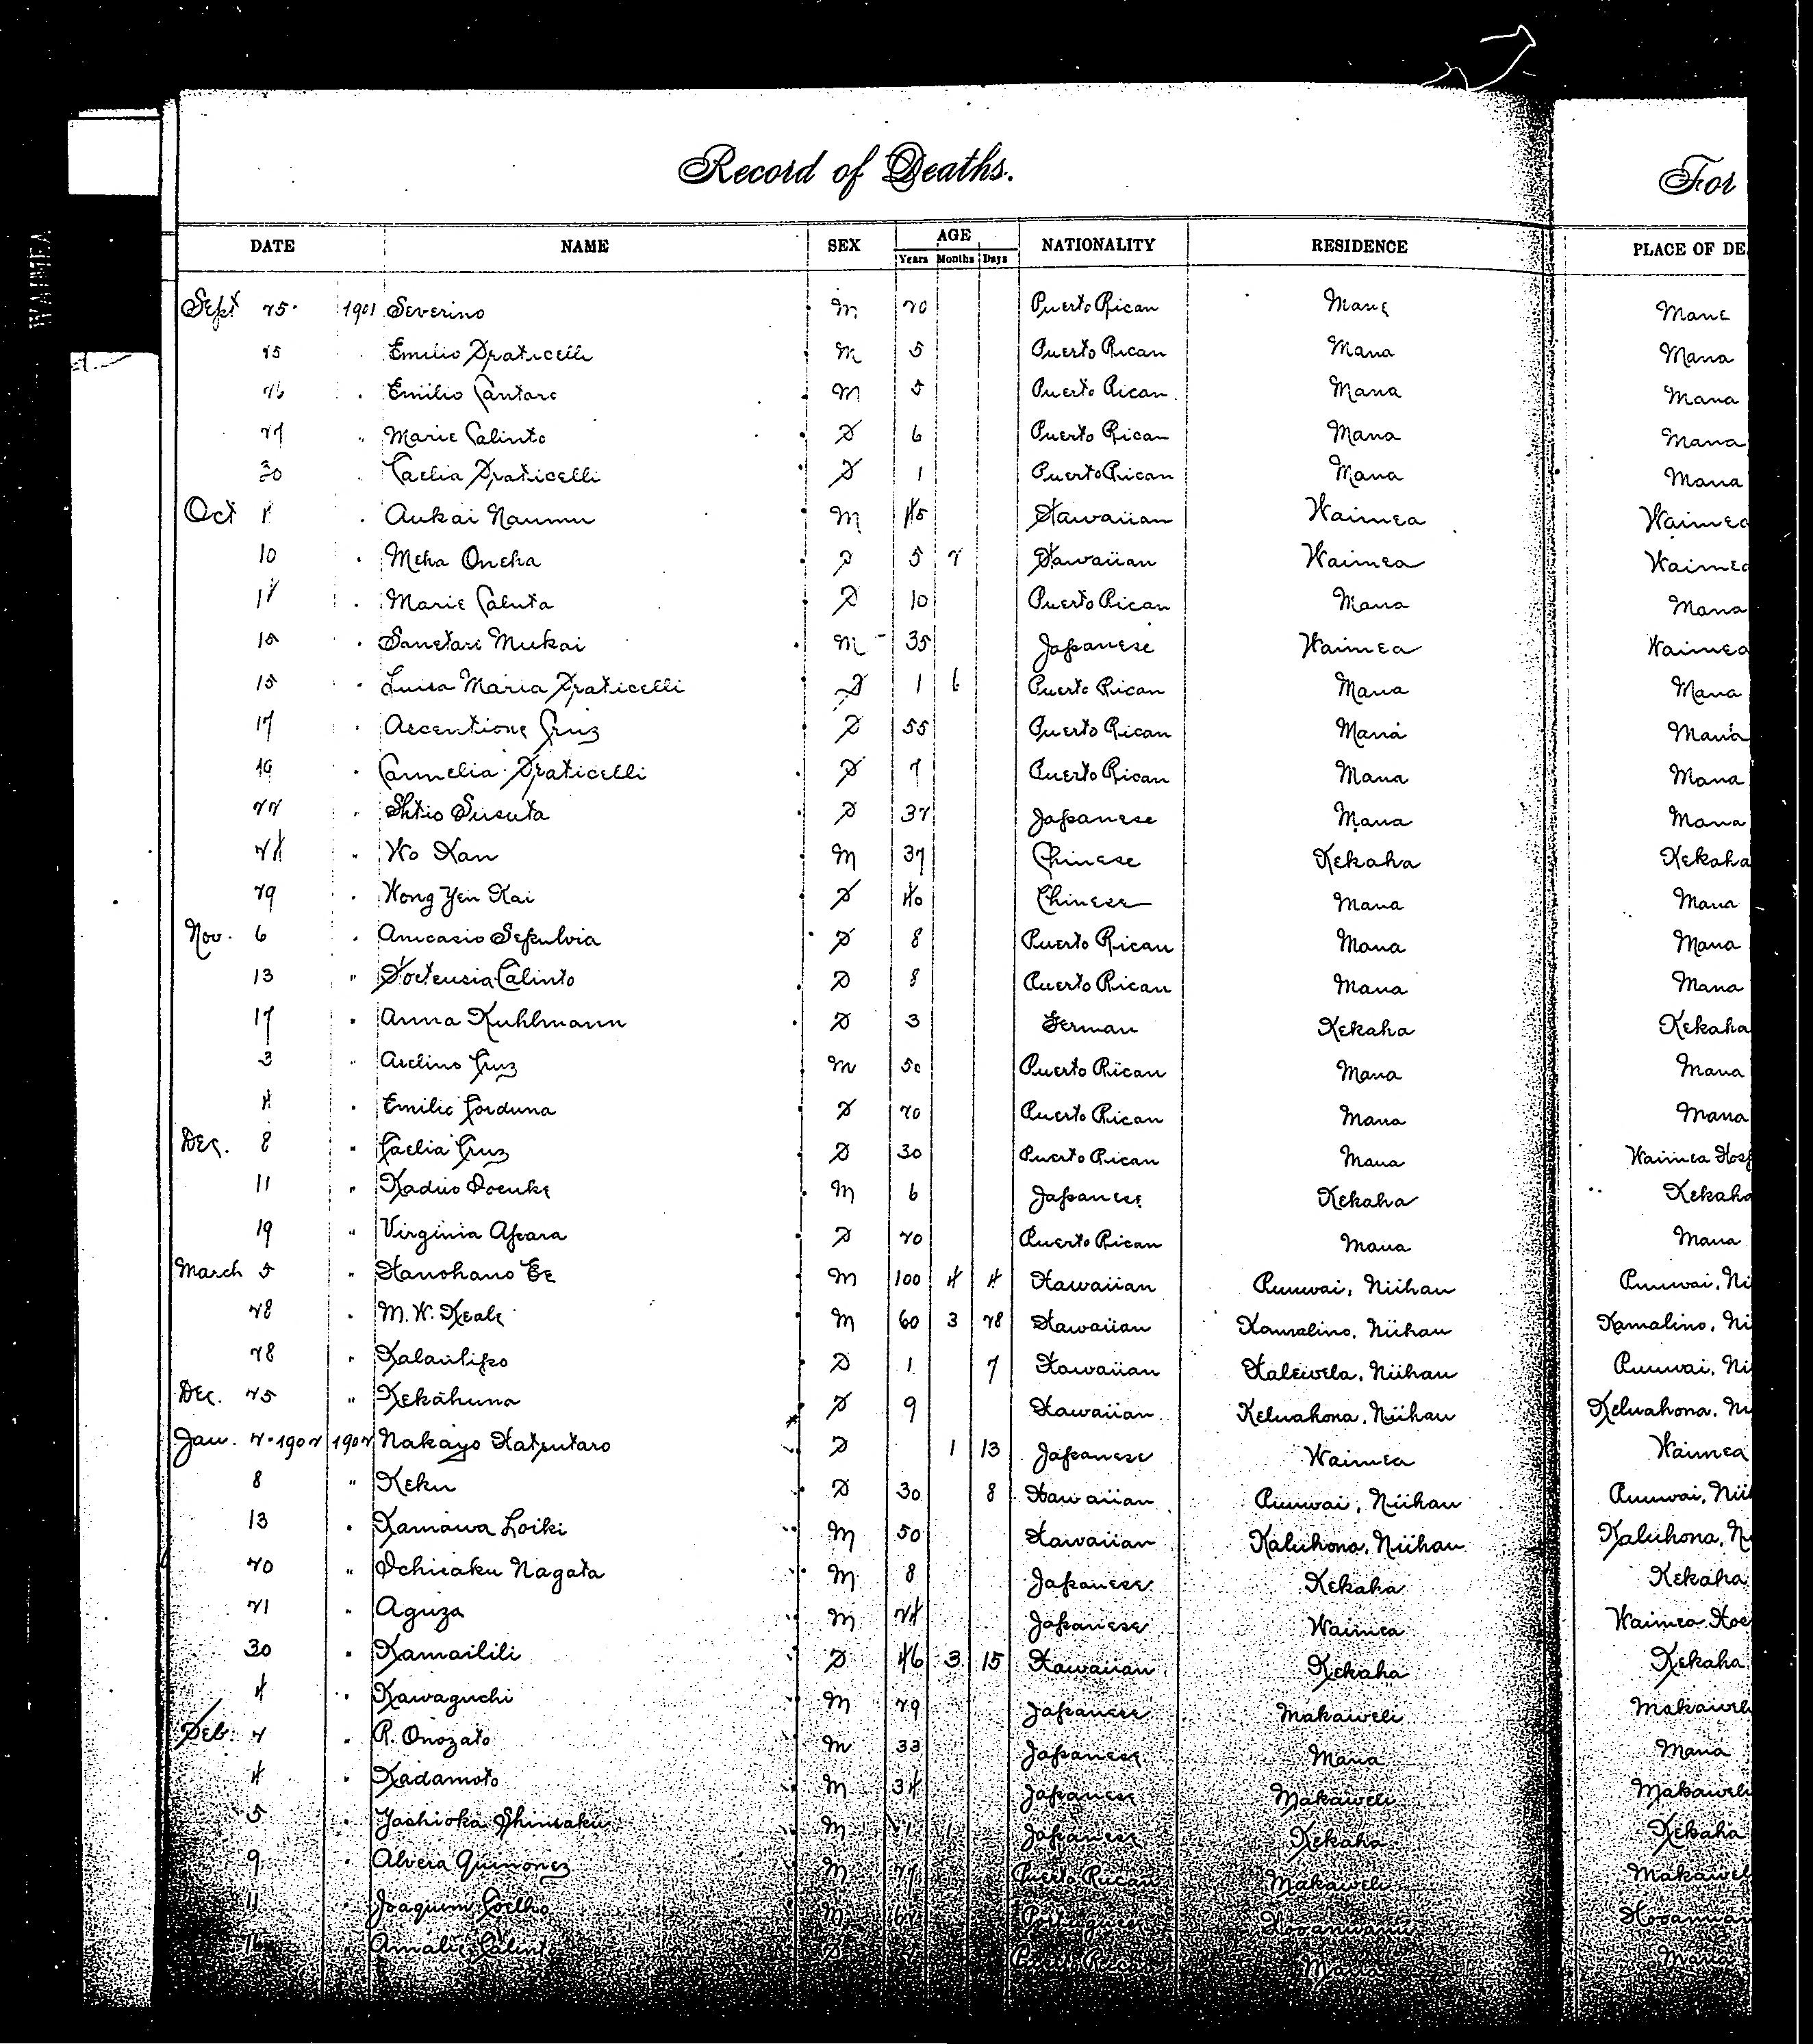 WAIMEA
Record of Deaths.
For
DATE NAME SEX AGE NATIONALITY RESIDENCE PLACE OF DE
Years Months Days
Sept 25 1901 Severino M 20 Puerto Rican Mana Mana
25 Emilio Fraticelli M 5 Puerto Rican Mana Mana
26 Emilio Cantaro M 5 Puerto Rican Mana Mana
27 " Marie Calinto F 6 Puerto Rican Mana Mana
30 Caelia Fraticelli F 1 Puerto Rican Mana Mana
Oct Aukai Naumu M 45 Hawaiian Waimea Waimea
10 Meha Oneha F 5 2 Hawaiian Waimea Waimea
Marie Caluta F 10 Puerto Rican Mana Mana
15 Sanetaro Mukai M 35 Japanese Waimea Waimea
15 Luisa Maria Fraticelli F 1 6 Puerto Rican Mana Mana
17 Ascentione Cruz F 55 Puerto Rican Mana Mana
19 Carmelia Fraticelli F 7 Puerto Rican Mana Mana
22 " Shtio Susuta F 32 Japanese Mana Mana
24 " Wo Kan M 37 Chinese Kekaha Kekaha
29 Wong Yen Kai F 40 Chinese Mana Mana
Nov. 6 Anicasio Sepulvia F 8 Puerto Rican Mana Mana
13 " Hortensia Calinto F 8 Puerto Rican Mana Mana
17 Anna Kuhlmann F 3 German Kekaha Kekaha
3 " Avelino Cruz M 50 Puerto Rican Mana Mana
4 Emilio Corduna F 20 Puerto Rican Mana Mana
Dec. 8 " Caelia Cruz F 30 Puerto Rican Mana Waimea Hosp
11 " Kadiio M 6 Japanese Kekaha Kekaha
19 " Virginia Apara F 20 Puerto Rican Mana Mana
March 5 " Hanohano Ee M 100 4 4 Hawaiian Puuwai, Niihau Puuwai, Ni
28 M. W. Keale M 60 3 28 Hawaiian Kamalino, Niihau Kamalino, Ni
28 " Kalaulipo F 1 7 Hawaiian Kalewela, Niihau Puuwai, Ni
Dec. 25 " Kekahuna F 9 Hawaiian Keluahona, Niihau Keluahona, Ni
Jan. 2. 1902 1902 Nakayo Katsutaro F 1 13 Japanese Waimea Waimea
8 " Keku F 30 8 Hawaiian Puuwai, Niihau Puuwai, Nii
13 Kamawa Loiki M 50 Hawaiian Kaluhona, Niihau Kaluhona, N
20 " Ichisaku Nagata M 8 Japanese Kekaha Kekaha
21 " Aguza M 24 Japanese Waimea Waimea Hos
30 " Kamailili F 46 3 15 Hawaiian Kekaha Kekaha
4 Kawaguchi M 29 Japanese Makaweli Makaweli
Feb. 2 R. Onozato M 33 Japanese Mana Mana
4 Kadamoto M 34 Japanese Makaweli Makaweli
5 Yoshioka Shinsaku M 1 Japanese Kekaha Kekaha
9 Alvera Quinonez M Puerto Rican Makaweli Makawel
11 Joaquim Coelho M Portuguese
Amalie Calinto F Puerto Rican Mana Mana